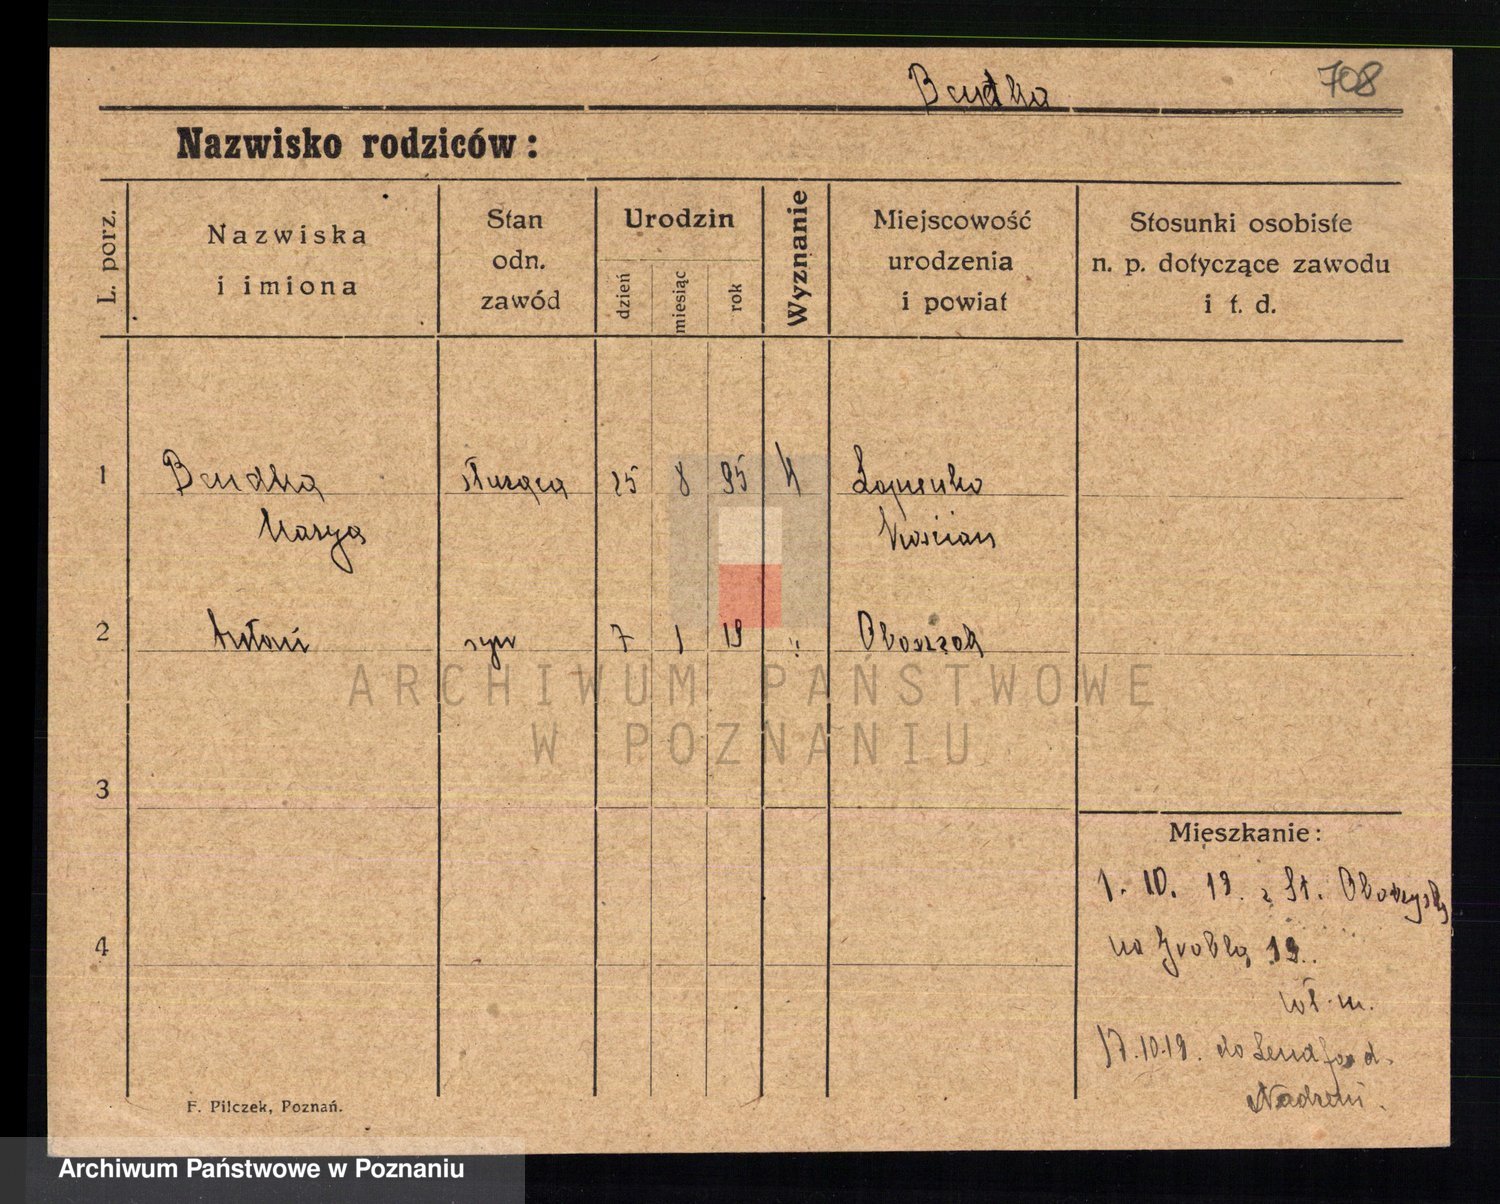 Bendka
708
Nazwisko rodziców:
L. porz.
Nazwiska
i imiona
Stan
odn.
zawód
Urodzin
dzień
miesiąc
rok
Wyznanie
Miejscowość
urodzenia
i powiat
Stosunki osobiste
n. p. dotyczące zawodu
i t. d.
1 Bendka służąca 25 8 95 K
Marya Kościan
2 Antoni syn 7 1 19 "
ARCHIWUM PAŃSTWOWE
W POZNANIU
3
Mieszkanie:
1. 10. 19. z St.
4
na Groblą 19.
m.
17.10.19. do
F. Pilczek, Poznań.
Archiwum Państwowe w Poznaniu